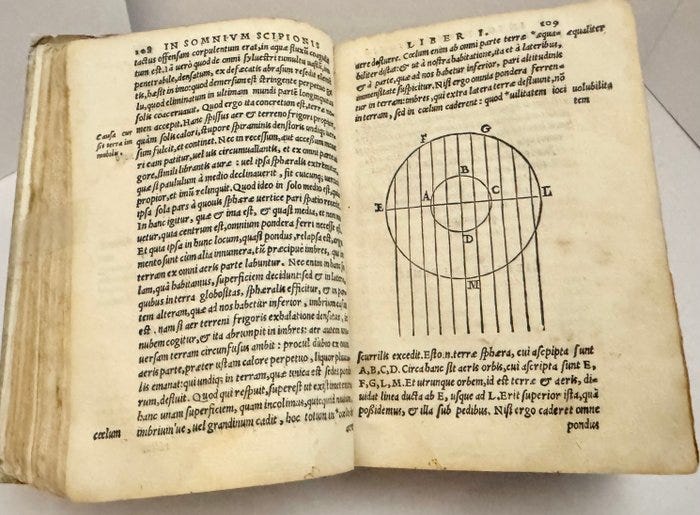 208 IN SOMNIVM SCIPIONIS
tactus offensam corpulentum erat, in aquæ fluxũ
tum est. Iã uerò quod de omni syluestri tumultu
penetrabile, densatum, ex defæcatis abrasum resedit
tis, hæsit in imo: quod demersum est stringente perpetuo
lu, quod eliminatum in ultimam mundi partẽ longinquitas
solis coaceruauit. Quod ergo ita concretum est, terræ no-
men accepit. Hanc spissus aer & terreno frigori propior,
quàm solis calori, stupore spiraminis densioris undiq;
sum fulcit, & continet. Nec in recessum, aut accessum moue
ri eam patitur, uel uis circumuallantis, & ex omni parte
gore, simili librantis auræ : uel ipsa sphæralis extremitas,
quæ si paululum à medio declinauerit, fit cuicunq; uertici
propior, et imũ relinquit. Quod ideo in solo medio est, quia
ipsa sola pars à quouis sphæræ uertice pari spatio recedit.
In hanc igitur, quæ & ima est, & quasi media, et non mo
uetur, quia centrum est, omnium pondera ferri necesse est,
Et quia ipsa in hunc locum, quasi pondus, relapsa est,
mento sunt cùm alia innumera, tũ præcipue imbres, qui in
terram ex omni aeris parte labuntur. Nec enim in hanc
lam, quã habitamus, superficiem decidunt: sed & in latera,
quibus in terra globositas, sphæralis efficitur, & in par
tem alteram, quæ ad nos habetur inferior, imbrium casus
est. nam si aer terreni frigoris exhalatione densatus, in
nubem cogitur, & ita abrumpit in imbres: aer autem uni-
uersam terram circunfusus ambit : procul dubio ex omni
aeris parte, præter ustam calore perpetuo, liquor pluuia
lis emanat: qui undiq; in terram, quæ unica est sedes ponde
rum, defluit. Quod qui respuit, superest ut extra
hanc unam superficiem, quam incolimus, quicquid niuium,
imbrium'ue, uel grandinum cadit, hoc totum in *cælum
Causa cur
sit terra im
mobilis.
cœlum
LIBER I. 209
uere defluere. Cœlum enim ab omni parte terræ *æqua
biliter distat: & ut à nostra habitatione, ita et à lateribus,
& à parte, quæ ad nos habetur inferior, pari altitudinis
immensitate suspicitur. Nisi ergo omnia pondera ferren-
tur in terram: imbres, qui extra latera terræ defluunt, nõ
in terram, sed in cœlum caderent : quod *uilitatem ioci
æqualiter
uolubilita
tem
F G
B
E A C L
D
M
scurrilis excedit. Esto .n. terræ sphæra, cui ascipta sunt
A,B,C,D. Circa hanc sit aeris orbis, cui ascripta sunt E,
F, G, L, M. Et utrunque orbem, id est terræ & aeris, di-
uidat linea ducta ab E, usque ad L. Erit superior ista, quã
possidemus, & illa sub pedibus. Nisi ergo caderet omne
pondus